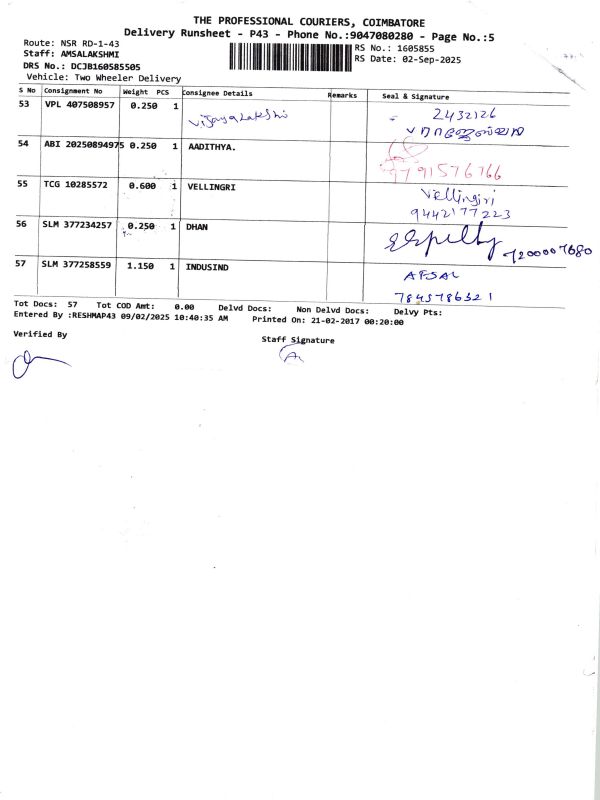 THE PROFESSIONAL COURIERS, COIMBATORE
Delivery Runsheet - P43 - Phone No.:9047080280 - Page No.:5
Route: NSR RD-1-43
RS No.: 1605855
Staff: AMSALAKSHMI
RS Date: 02-Sep-2025
DRS No.: DCJB160585505
Vehicle: Two Wheeler Delivery
S No Consignment No Weight PCS Consignee Details Remarks Seal & Signature
53 VPL 407508957 0.250 1 Vijayalakshi 2432126
54 ABI 20250894975 0.250 1 AADITHYA. 9791576766
55 TCG 10285572 0.600 1 VELLINGRI Vellingiri
9442177223
56 SLM 377234257 0.250 1 DHAN 7200007680
57 SLM 377258559 1.150 1 INDUSIND AFSAL
7845786321
Tot Docs: 57 Tot COD Amt: 0.00 Delvd Docs: Non Delvd Docs: Delvy Pts:
Entered By :RESHMAP43 09/02/2025 10:40:35 AM Printed On: 21-02-2017 00:20:00
Verified By
Staff Signature